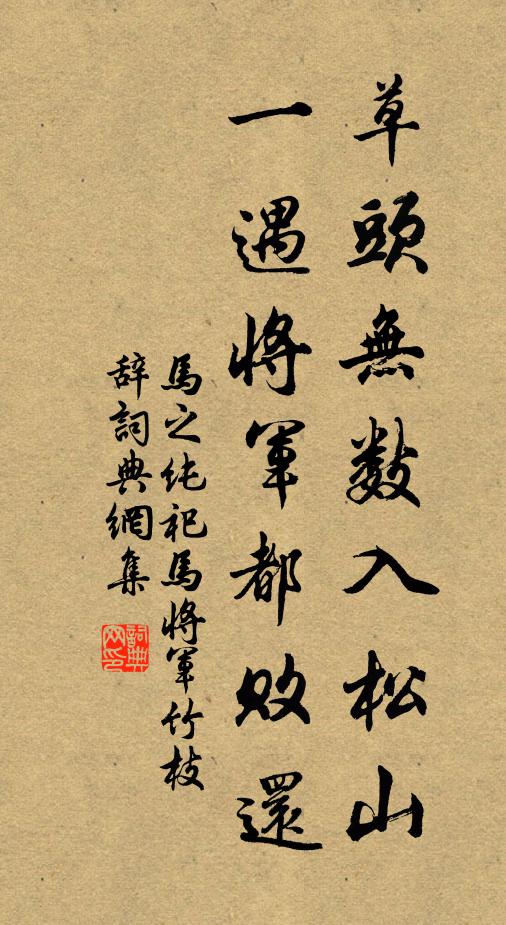 草頭無數入松山
一遇將軍都敗還
馬之純祀馬將軍竹枝
辭詞典網集
詞典
网印